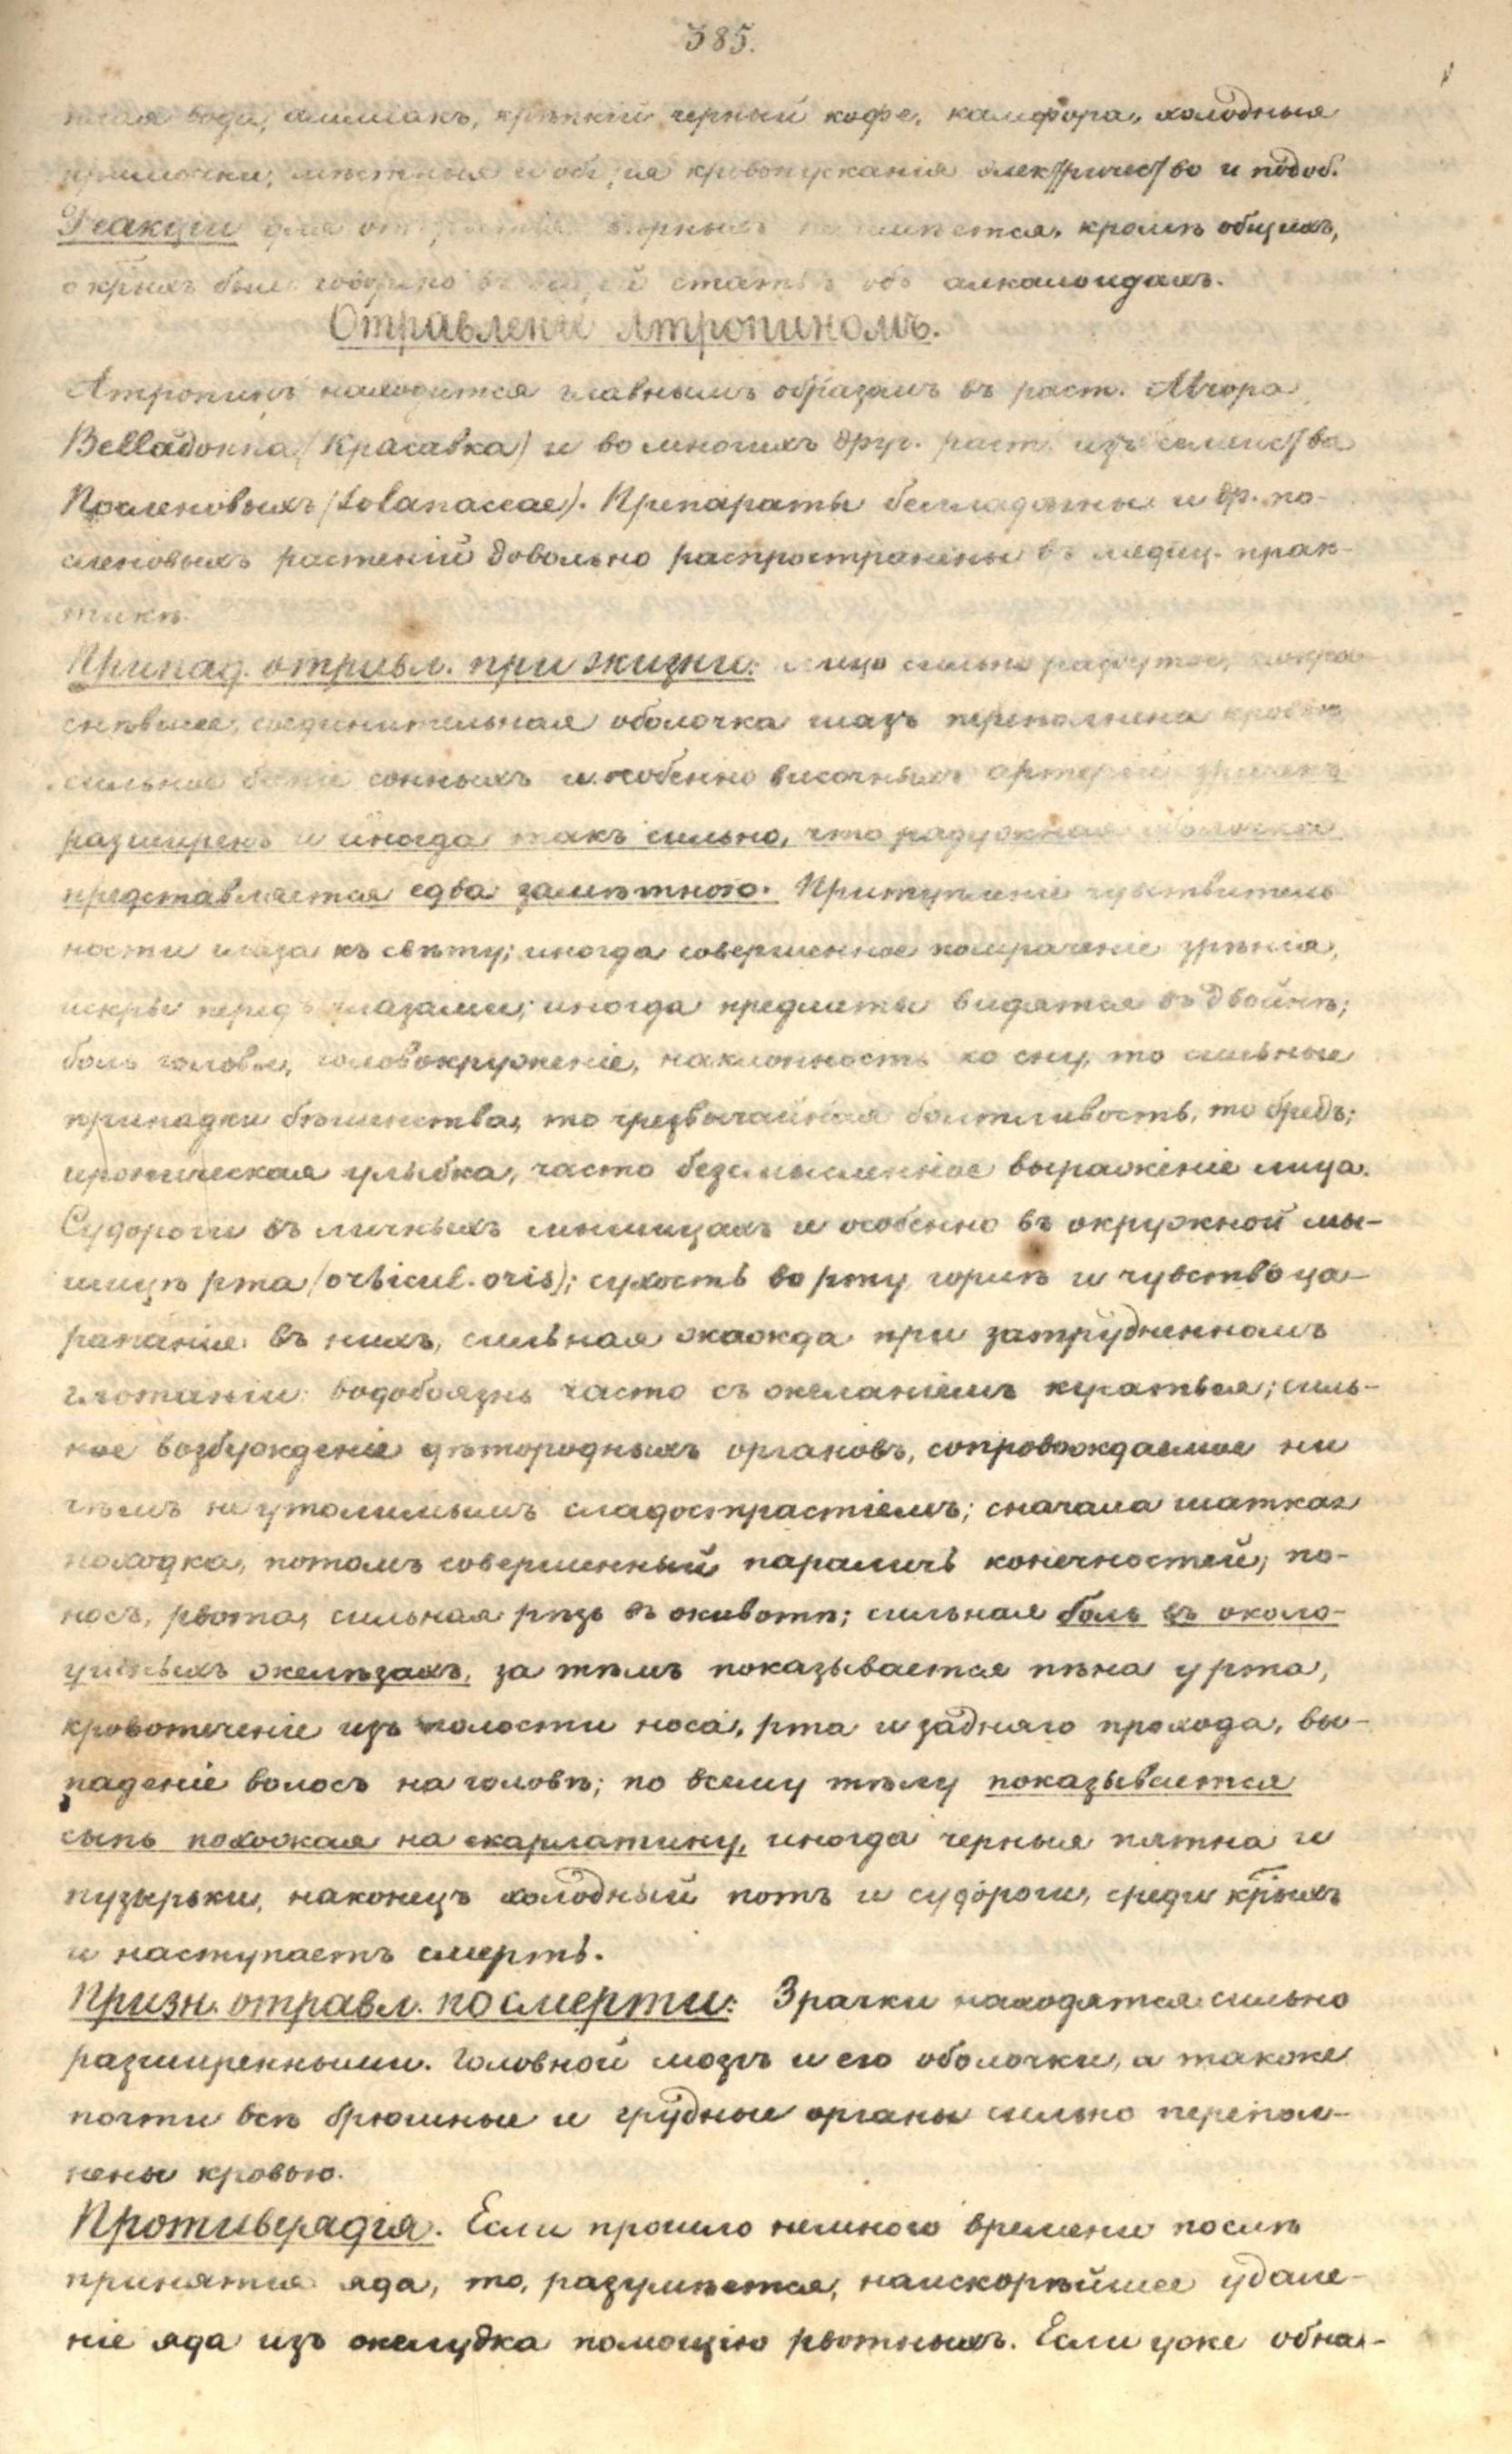 385.
вода, амміакъ, крѣпкій черный кофе, камфора, холодныя
примочки, мѣстныя и общія кровопусканія электричество и подоб.
Реакціи для открытія вѣрныхъ не имѣется, кромѣ общихъ,
о крыхъ было говорено въ общей статьѣ объ алкалоидахъ.
Отравленіе Атропиномъ.
Атропинъ находится главнымъ образомъ въ раст. Atropa
Belladonna (Красавка) и во многихъ друг. раст. изъ семейства
Пасленовыхъ (Solanaceae). Препараты белладонны и др. па-
сленовыхъ растеній довольно распространены въ медиц. прак-
тикѣ.
Припад. отравл. при жизни: Лицо сильно раздутое, покра-
снѣвшее, соединительная оболочка глазъ переполнена кровью
сильное біеніе сонныхъ и особенно височныхъ артерій зрачекъ
разширенъ и иногда такъ сильно, что радужная оболочка
представляется едва замѣтною. Притупленіе чувствитель
ности глаза къ свѣту; иногда совершенное помраченіе зрѣнія,
искры передъ глазами; иногда предметы видятся въ двойнѣ;
боль головы, головокруженіе, наклонность ко сну, то сильные
припадки бѣшенства, то чрезвычайная болтливость, то бредъ;
ироническая улыбка, часто безсмысленное выраженіе лица.
Судороги въ личныхъ мышцахъ и особенно въ окружной мы-
шцѣ рта (orbicul. oris); сухость во рту, горлѣ и чувство ца-
рапанія въ нихъ, сильная жажда при затрудненномъ
глотаніи; водобоязнь часто съ желаніемъ кусаться; силь-
ное возбужденіе дѣтородныхъ органовъ, сопровождаемое ни
чѣмъ не утолимымъ сладострастіемъ; сначала шаткая
походка, потомъ совершенный параличъ конечностей; по-
носъ, рвота, сильная рѣзь въ животѣ; сильная боль въ около-
ушныхъ железахъ, за тѣмъ показывается пѣна у рта,
кровотеченіе изъ полости носа, рта и задняго прохода, вы-
паденіе волосъ на головѣ; по всему тѣлу показывается
сыпь похожая на скарлатину, иногда черныя пятна и
пузырьки, наконецъ холодный потъ и судороги, среди крыхъ
и наступаетъ смерть.
Призн. отравл. по смерти: Зрачки находятся сильно
разширенными. Головной мозгъ и его оболочки, а также
почти всѣ брюшные и грудные органы сильно перепол-
нены кровью.
Противуядія. Если прошло немного времени послѣ
принятія яда, то, разумѣется, наискорѣйшее удале-
ніе яда изъ желудка помощію рвотныхъ. Если уже обна-